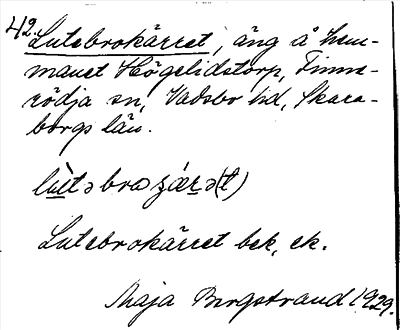 42. Lutebrokärret, äng å hem-
manet Högelidstorp, Finne-
rödja sn, Vadsbo hd, Skara-
borgs län.
lùtəbrozǽrə(t)
Lutebrokärret bek, ek.
Maja Bergstrand 1929.